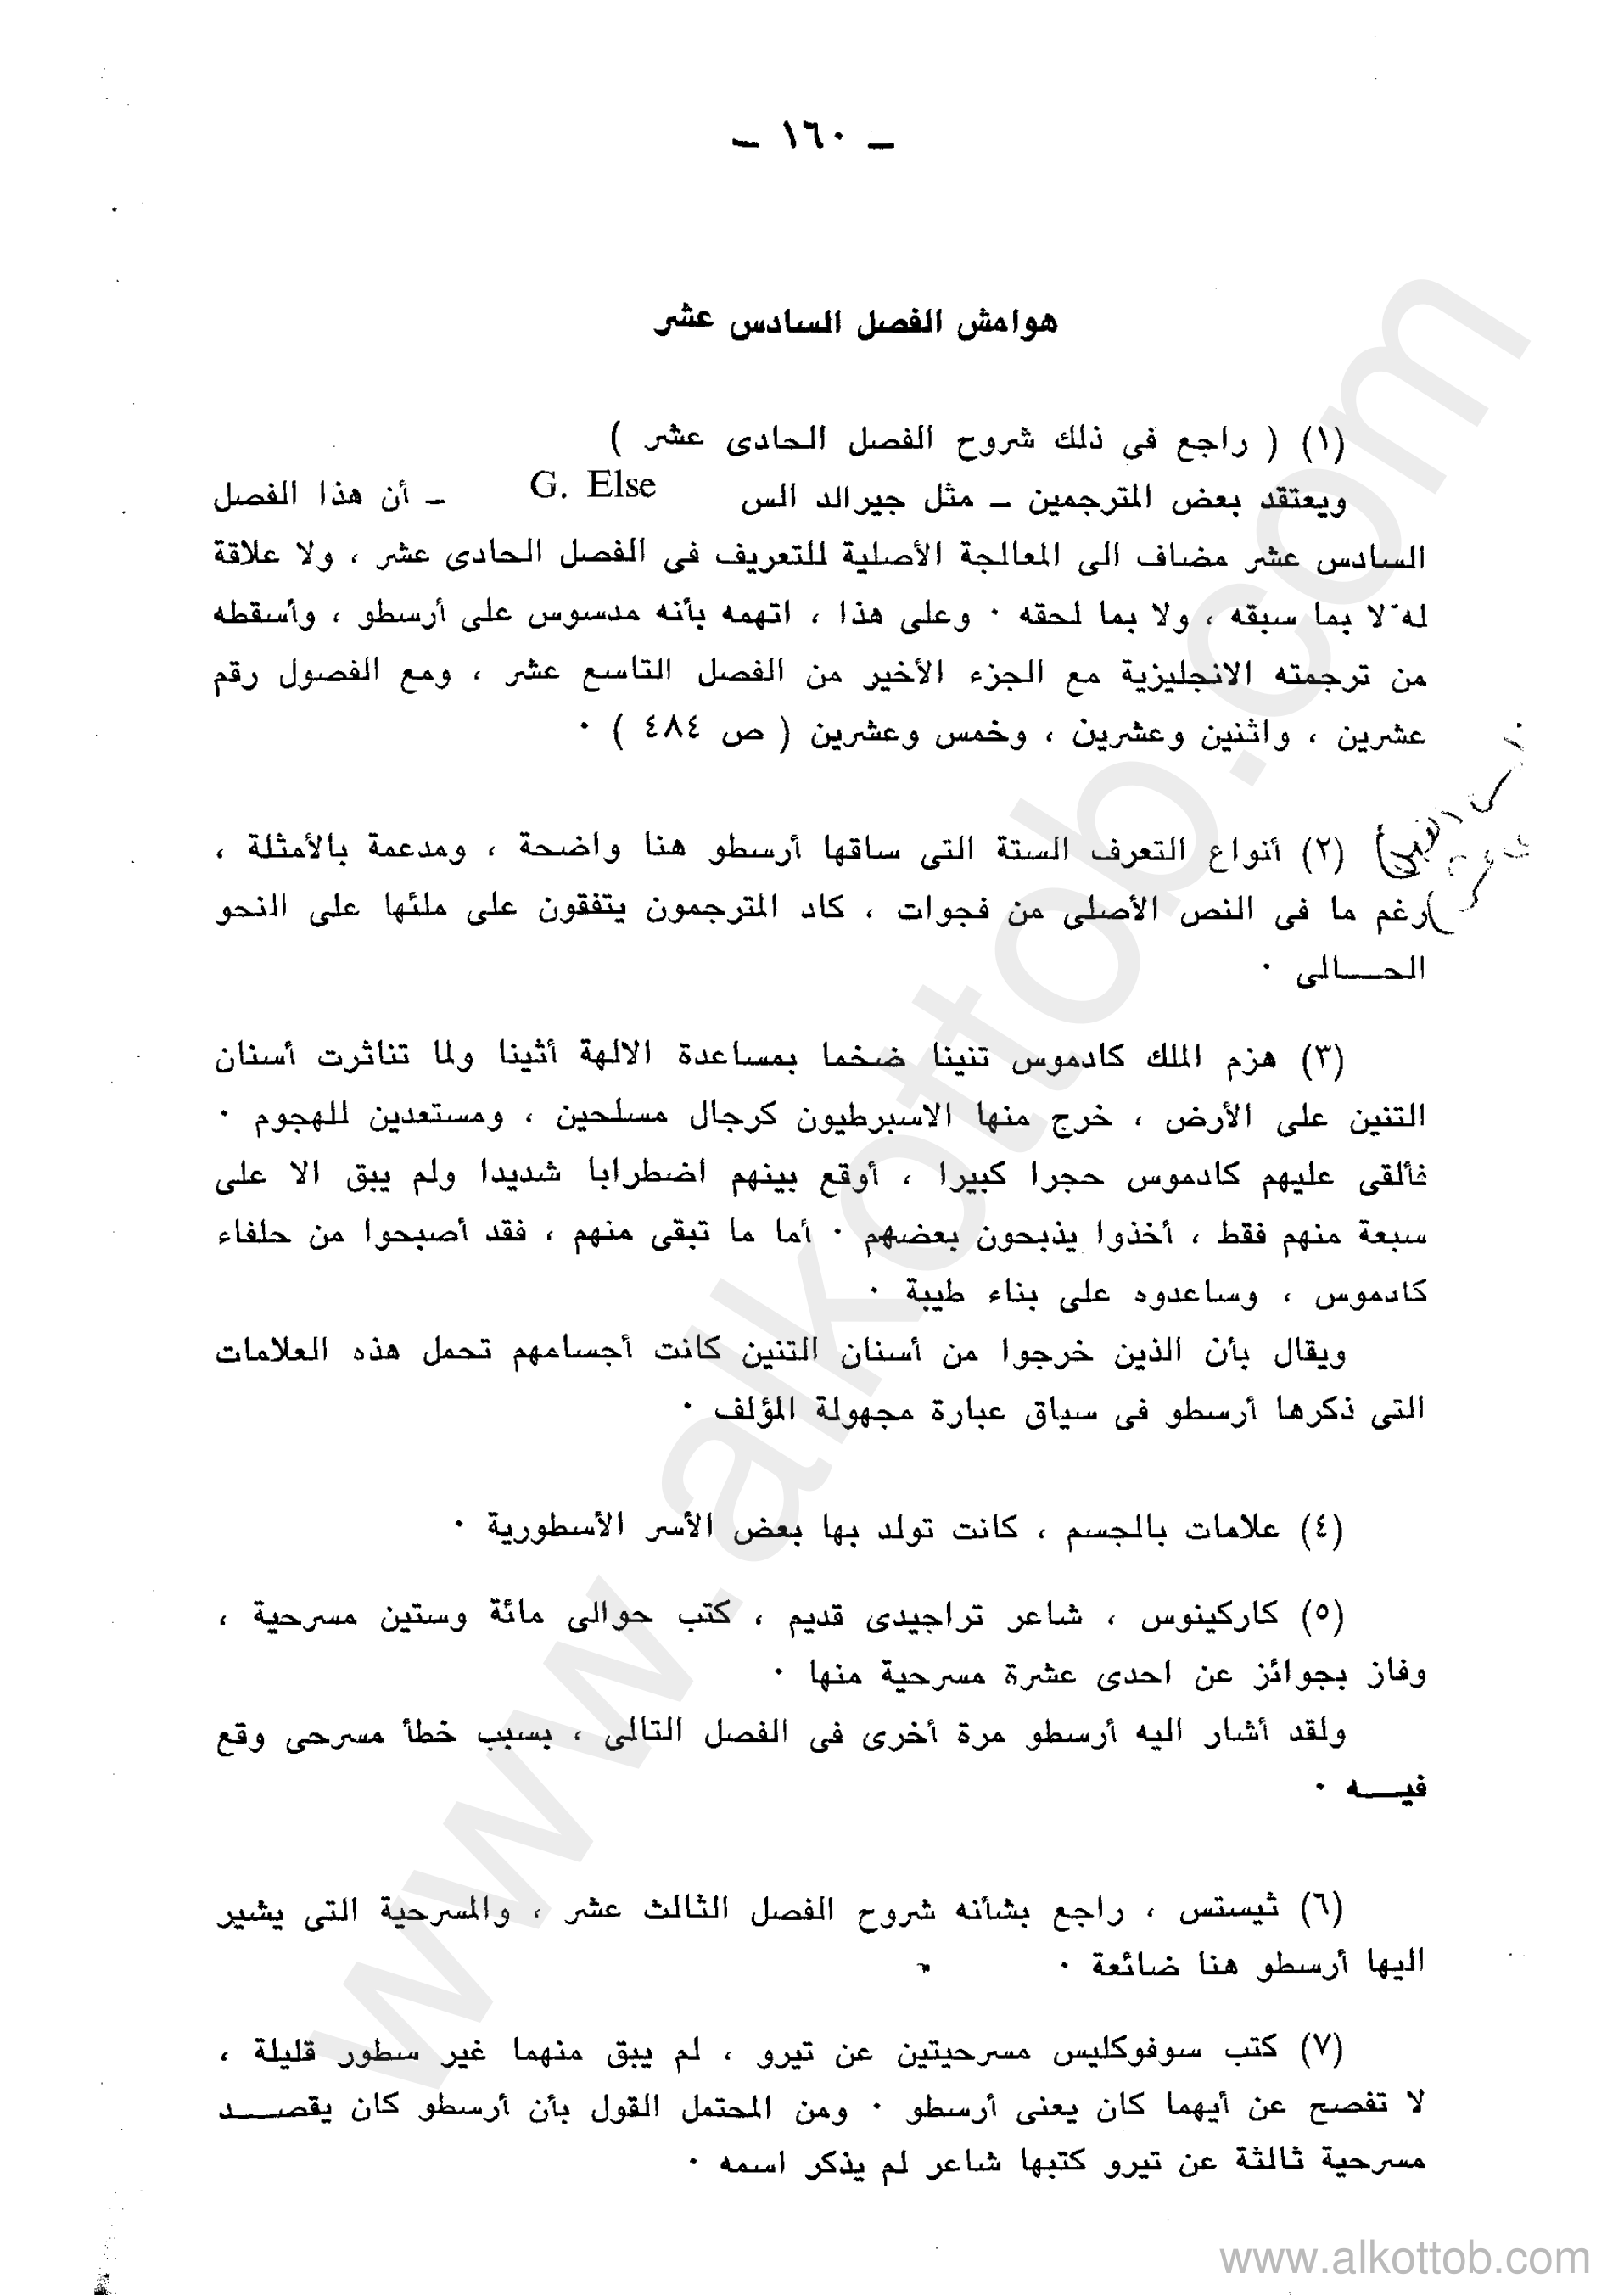 ـ ١٦٠ ـ
هوامش الفصل السادس عشر
(١) ( راجع فى ذلك شروح الفصل الحادى عشر )
ويعتقد بعض المترجمين ـ مثل جيرالد الس G. Else ـ أن هذا الفصل
السادس عشر مضاف الى المعالجة الأصلية للتعريف فى الفصل الحادى عشر ، ولا علاقة
له لا بما سبقه ، ولا بما لحقه ٠ وعلى هذا ، اتهمه بأنه مدسوس على أرسطو ، وأسقطه
من ترجمته الانجليزية مع الجزء الأخير من الفصل التاسع عشر ، ومع الفصول رقم
عشرين ، واثنين وعشرين ، وخمس وعشرين ( ص ٤٨٤ ) ٠
(٢) أنواع التعرف الستة التى ساقها أرسطو هنا واضحة ، ومدعمة بالأمثلة ،
رغم ما فى النص الأصلى من فجوات ، كاد المترجمون يتفقون على ملئها على النحو
الحـــالى ٠
(٣) هزم الملك كادموس تنينا ضخما بمساعدة الالهة أثينا ولما تناثرت أسنان
التنين على الأرض ، خرج منها الاسبرطيون كرجال مسلحين ، ومستعدين للهجوم ٠
فألقى عليهم كادموس حجرا كبيرا ، أوقع بينهم اضطرابا شديدا ولم يبق الا على
سبعة منهم فقط ، أخذوا يذبحون بعضهم ٠ أما ما تبقى منهم ، فقد أصبحوا من حلفاء
كادموس ، وساعدوه على بناء طيبة ٠
ويقال بأن الذين خرجوا من أسنان التنين كانت أجسامهم تحمل هذه العلامات
التى ذكرها أرسطو فى سياق عبارة مجهولة المؤلف ٠
(٤) علامات بالجسم ، كانت تولد بها بعض الأسر الأسطورية ٠
(٥) كاركينوس ، شاعر تراجيدى قديم ، كتب حوالى مائة وستين مسرحية ،
وفاز بجوائز عن احدى عشرة مسرحية منها ٠
ولقد أشار اليه أرسطو مرة أخرى فى الفصل التالى ، بسبب خطأ مسرحى وقع
فيـــه ٠
(٦) ثيستس ، راجع بشأنه شروح الفصل الثالث عشر ، والمسرحية التى يشير
اليها أرسطو هنا ضائعة ٠
(٧) كتب سوفوكليس مسرحيتين عن تيرو ، لم يبق منهما غير سطور قليلة ،
لا تفصح عن أيهما كان يعنى أرسطو ٠ ومن المحتمل القول بأن أرسطو كان يقصـــد
مسرحية ثالثة عن تيرو كتبها شاعر لم يذكر اسمه ٠
www.alkottob.com
www.alkottob.com